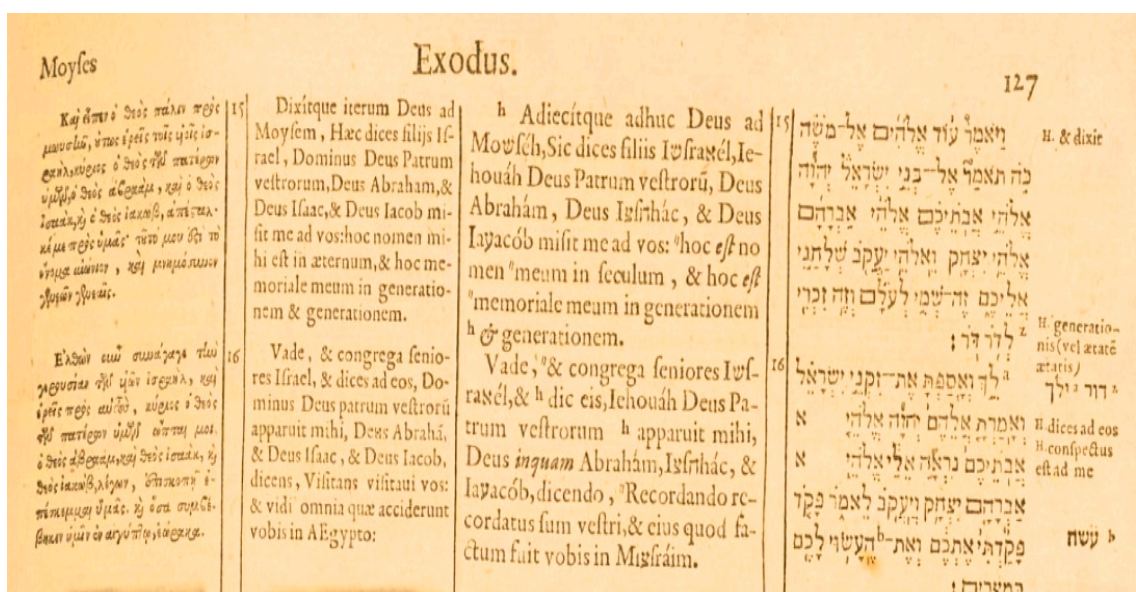 Moyſes
Exodus.
127
Καὶ εἶπεν ὁ θεὸς πάλιν πρὸς
μωυσῆν, οὕτως ἐρεῖς τοῖς υἱοῖς ἰσ-
ραὴλ, κύριος ὁ θεὸς τῶν πατέρων
ὑμῶν, ὁ θεὸς ἀβραὰμ, καὶ ὁ θεὸς
ἰσαὰκ, κ̀ ὁ θεὸς ἰακὼβ, ἀπέσταλ-
κέ με πρὸς ὑμᾶς· τοῦτό μου ὄστι τὸ
ὄνομα αἰώνιον, καὶ μνημόσυνον
γενεῶν γενεαῖς.
Ἐλθὼν οὖν συνάγαγε τὴν
γερουσίαν τῶν υἱῶν ἰσραὴλ, καὶ
ἐρεῖς πρὸς αὐτοὺς, κύριος ὁ θεὸς
τῶν πατέρων ὑμῶν ὦπταί μοι,
ὁ θεὸς ἀβραὰμ, καὶ θεὸς ἰσαὰκ, κ̀
θεὸς ἰακὼβ, λέγων, ἐπισκοπῇ ἐ-
πέσκεμμαι ὑμᾶς. κ̀ ὅσα συμβέ-
βηκεν ὑμῖν ἐν αἰγύπτῳ, ἑώρακα.
15
Dixítque iterum Deus ad
Moyſem, Hæc dices filijs Iſ-
rael, Dominus Deus Patrum
veſtrorum, Deus Abraham, &
Deus Iſaac, & Deus Iacob mi-
ſit me ad vos: hoc nomen mi-
hi eſt in æternum, & hoc me-
moriale meum in generatio-
nem & generationem.
16
Vade, & congrega ſenio-
res Iſrael, & dices ad eos, Do-
minus Deus patrum veſtrorũ
apparuit mihi, Deus Abrahã,
& Deus Iſaac, & Deus Iacob,
dicens, Viſitans viſitaui vos:
& vidi omnia quæ acciderunt
vobis in AEgypto:
h Adiecítque adhuc Deus ad
Deus Patrum veſtrorũ, Deus
Abrahám, Deus & Deus
Iaɣacób miſit me ad vos: hoc eſt no
men meum in ſeculum, & hoc eſt
memoriale meum in generationem
h & generationem.
Vade, & congrega ſeniores
& h dic eis, Iehouáh Deus Pa-
trum veſtrorum h apparuit mihi,
Deus inquam Abrahám, &
Iaɣacób, dicendo, Recordando re-
cordatus ſum veſtri, & eius quod fa-
ctum fuit vobis in
15
וַיֹּאמֶר עוֹד אֱלֹהִים אֶל־מֹשֶׁה
כֹּה תֹאמַר אֶל־בְּנֵי יִשְׂרָאֵל יְהוָה
אֱלֹהֵי אֲבֹתֵיכֶם אֱלֹהֵי אַבְרָהָם
אֱלֹהֵי יִצְחָק וֵאלֹהֵי יַעֲקֹב שְׁלָחַנִי
אֲלֵיכֶם זֶה־שְּׁמִי לְעֹלָם וְזֶה זִכְרִי
לְדֹר דֹּר׃
16
לֵךְ וְאָסַפְתָּ אֶת־זִקְנֵי יִשְׂרָאֵל
וְאָמַרְתָּ אֲלֵהֶם יְהוָה אֱלֹהֵי א
אֲבֹתֵיכֶם נִרְאָה אֵלַי אֱלֹהֵי א
אַבְרָהָם יִצְחָק וְיַעֲקֹב לֵאמֹר פָּקֹד
פָּקַדְתִּי אֶתְכֶם וְאֶת־ b הֶעָשׂוּי לָכֶם
בְּמִצְרָיִם׃
H. & dixit
H. generatio-
nis (vel ætatẽ
ætatis)
דור ילך
H dices ad eos
H. conſpectus
eſt ad me
b עשה